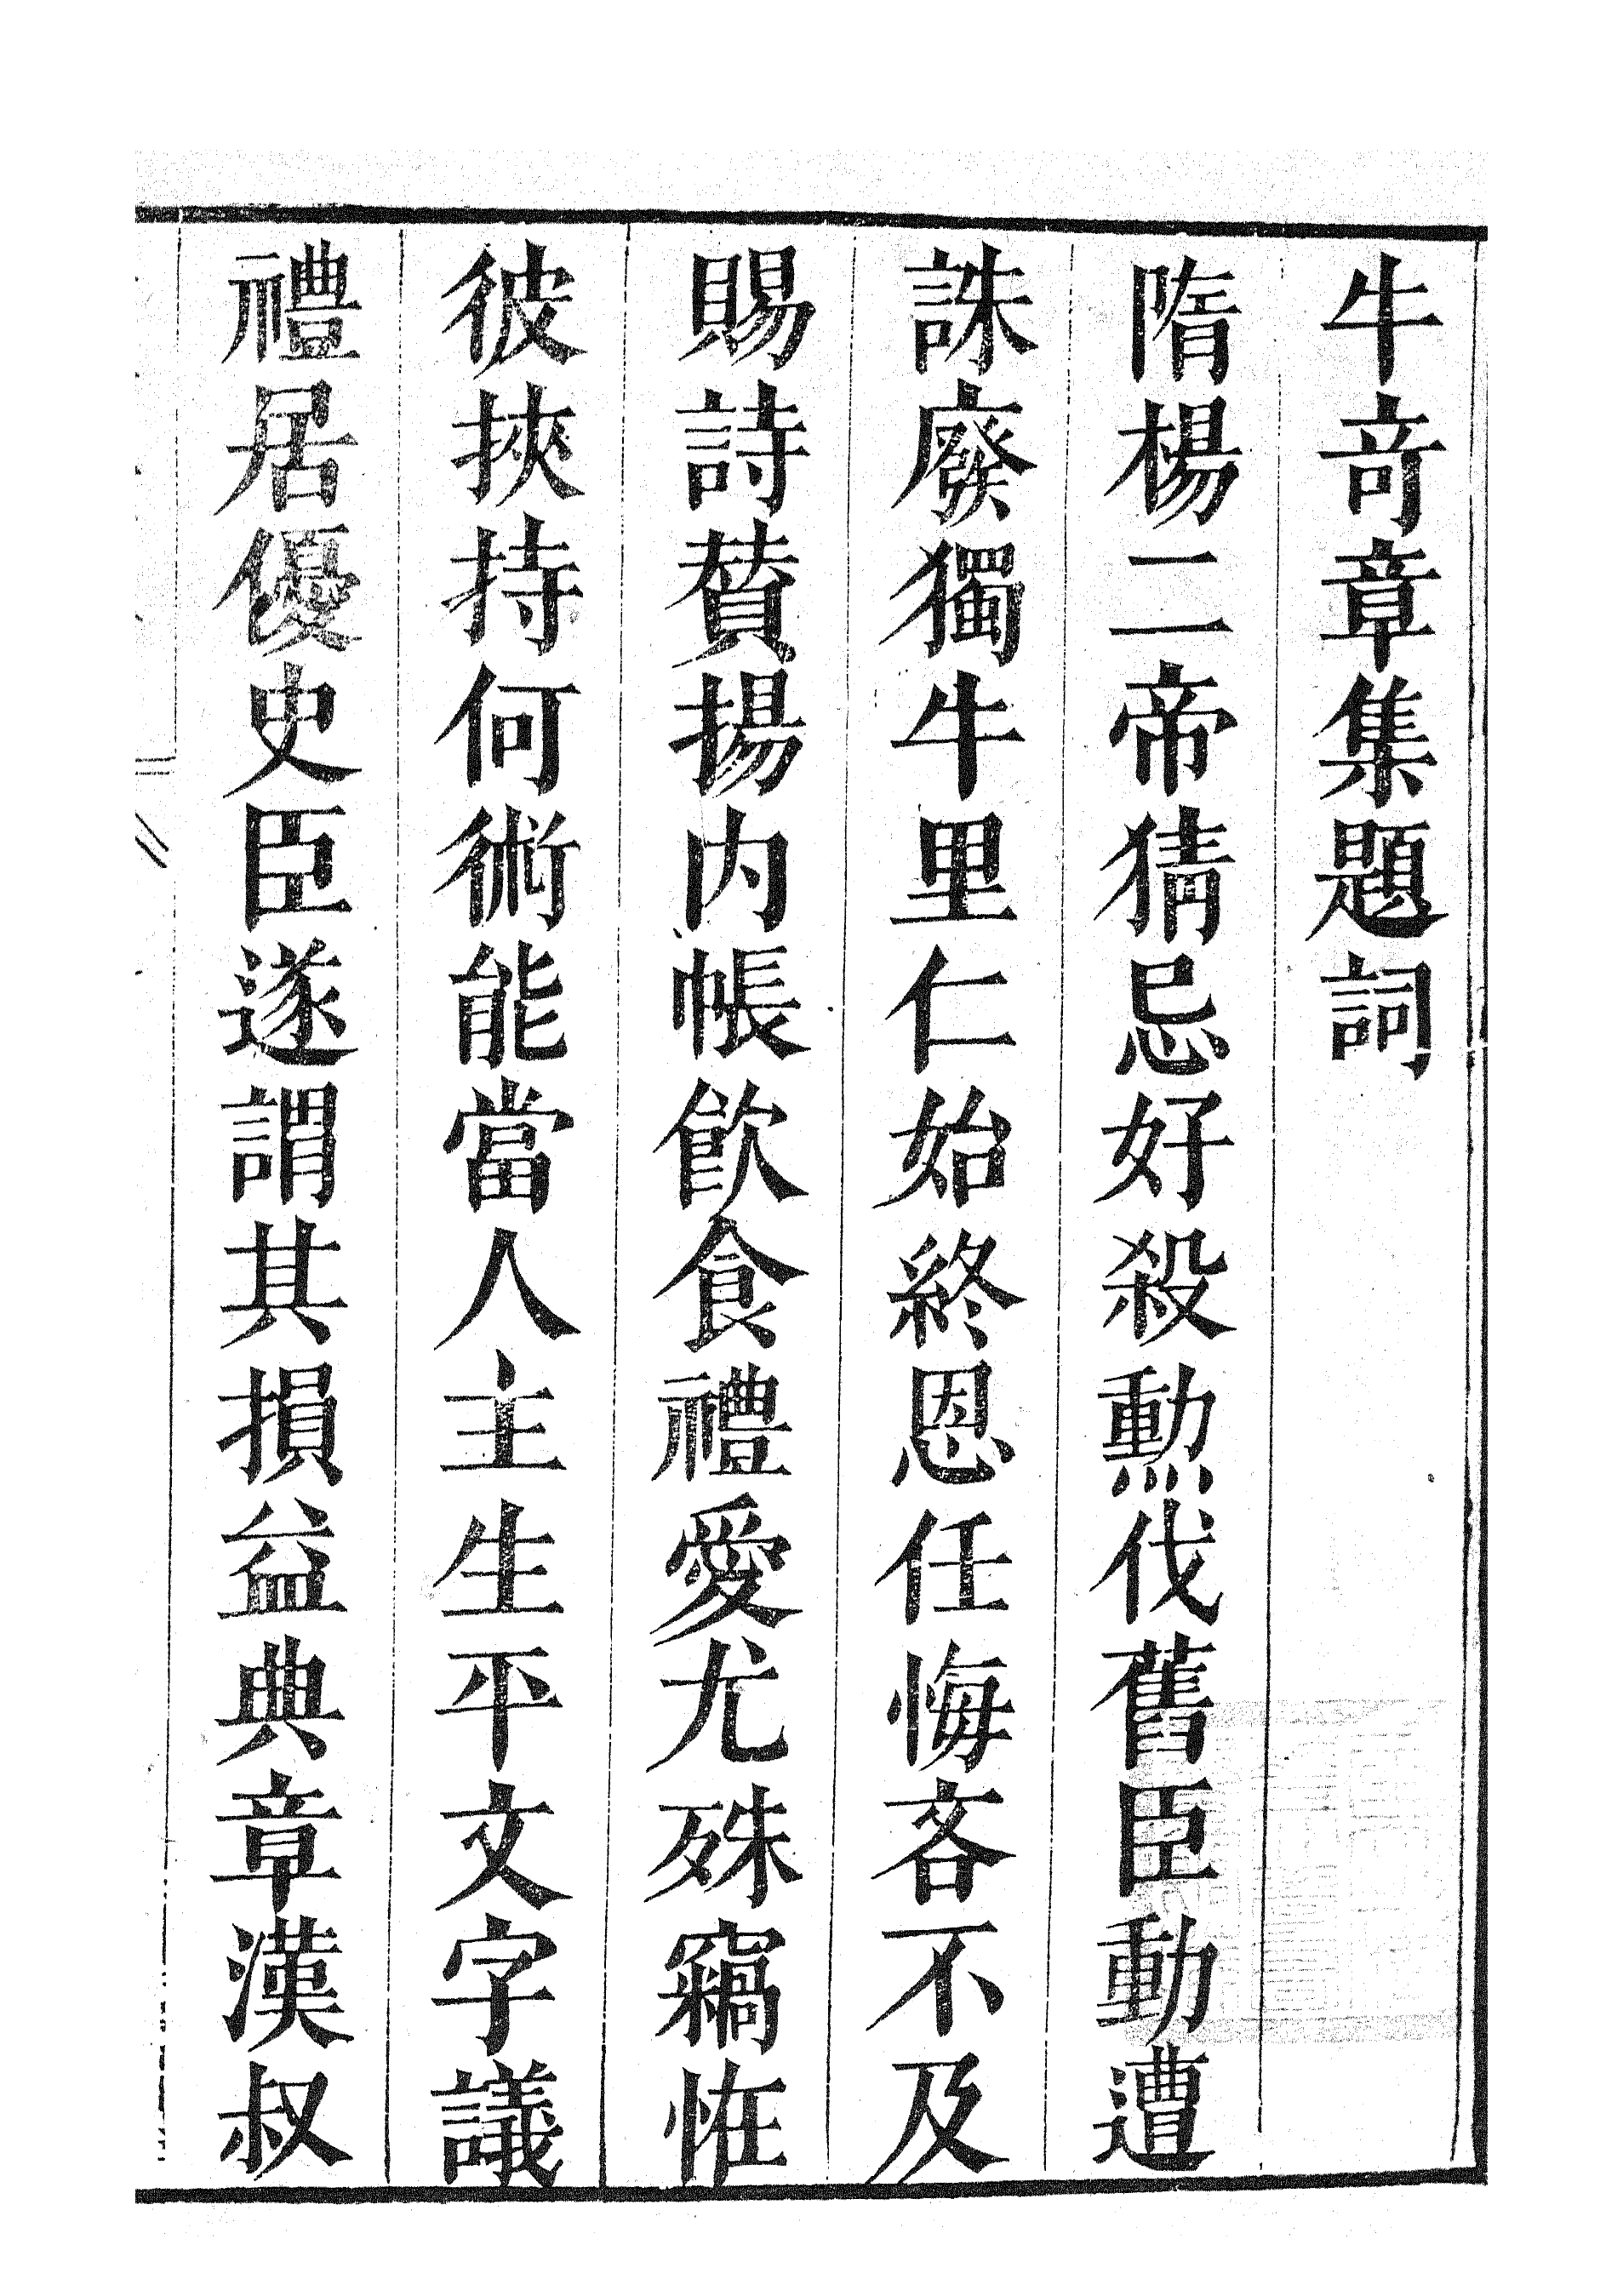 牛竒章集題詞
隋楊二帝猜忌好殺勲伐舊臣動遭
誅廢獨牛里仁始終恩任悔吝不及
賜詩賛揚内帳飲食禮愛尤殊竊恠
彼挾持何術能當人主生平文字議
禮居優史臣遂謂其損益典章漢叔